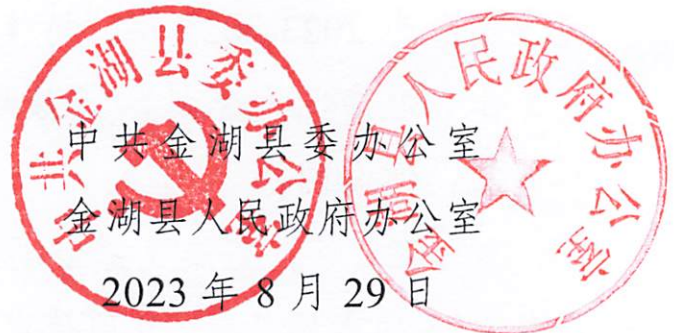 中共金湖县委办公室
金湖县人民政府办公室
2023年8月29日
中共金湖县委办公室
金湖县人民政府办公室